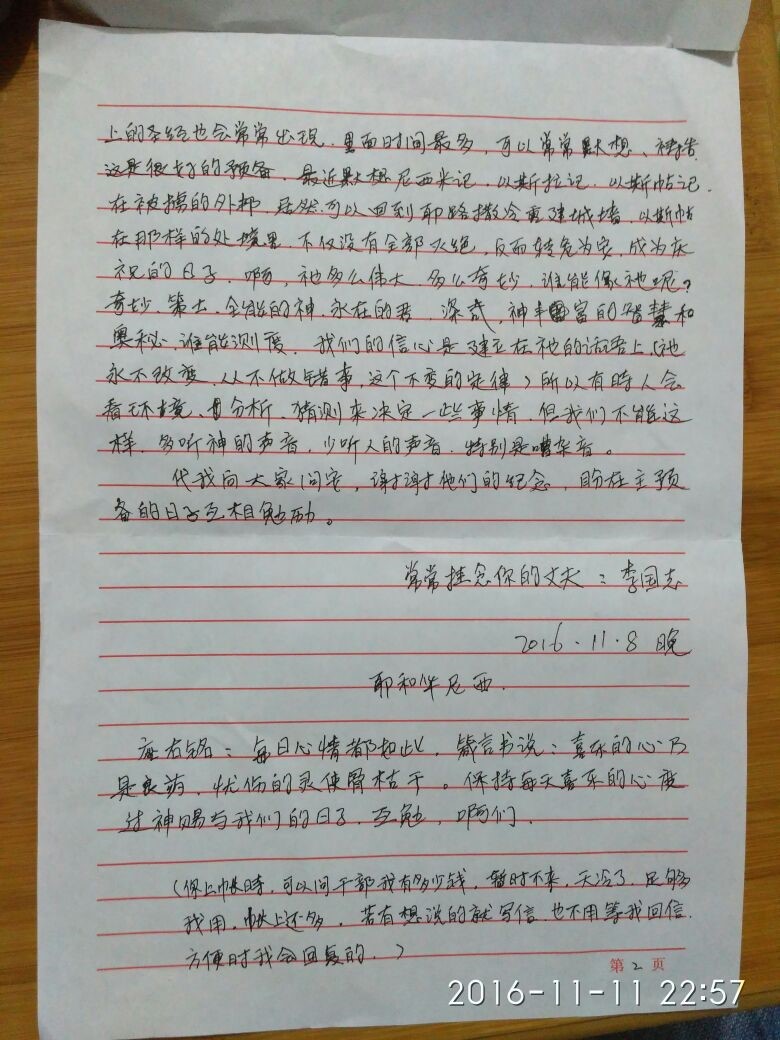 上的圣经也会常常出现。里面时间最多，可以常常默想、祷告
这是很好的预备。最近默想尼西米记，以斯拉记，以斯帖记。
在被掳的外邦居然可以回到耶路撒冷重建城墙，以斯帖
在那样的处境里，不仅没有全部灭绝，反而转危为安，成为庆
祝的日子。啊，祂多么伟大，多么奇妙，谁能像祂呢？
奇妙、策士、全能的神、永在的君。深哉，神丰富的智慧和
奥秘，谁能测度。我们的信心是建立在祂的话语上（祂
永不改变，从不做错事，这个不变的定律）所以有時人会
看环境，分析，猜测来决定一些事情，但我们不能这
样，多听神的声音，少听人的声音，特别是嘈杂音。
代我向大家问安，谢谢他们的纪念，盼在主预
备的日子互相勉励。
常常挂念你的丈夫：李国志
2016.11.8 晚
耶和华尼西.
座右铭：每日心情都如此，箴言书说：喜乐的心乃
是良药，忧伤的灵使骨枯干。保持每天喜乐的心度
过神赐与我们的日子，互勉，啊们。
（你上帐時，可以问干部我有多少钱，暂时不来，天冷了，足够
我用，帐上还多，若有想说的就写信，也不用等我回信，
方便时我会回复的。）
第 2 页
2016-11-11 22:57